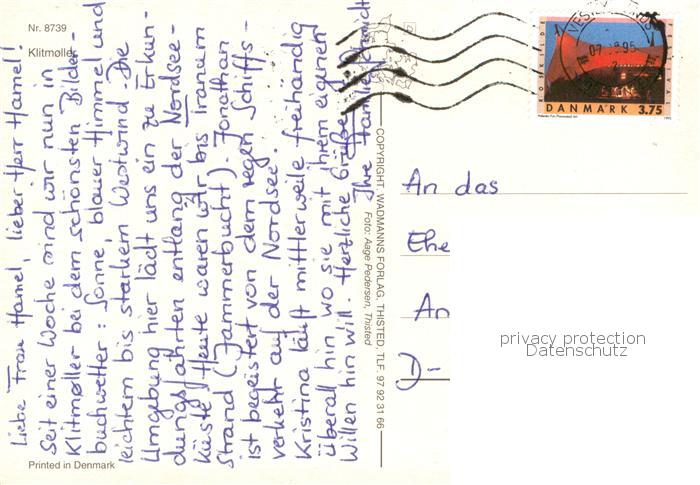 Nr. 8739
Klitmøller
Liebe Frau Hamel, lieber Herr Hamel!
Seit einer Woche sind wir nun in
Klitmøller bei dem schönsten Bilder-
buchwetter: Sonne, blauer Himmel und
leichtem bis starkem Westwind. Die
Umgebung hier lädt uns ein zu Erkun-
dungsfahrten entlang der Nordsee-
küste. Heute waren wir bis Tranum
Strand (Jammerbucht). Jonathan
ist begeistert von dem regen Schiffs-
verkehr auf der Nordsee.
Kristina läuft mittlerweile freihändig
überall hin, wo sie mit ihrem eigenen
Willen hin will. Herzliche Grüße
Ihre Familie
Printed in Denmark
COPYRIGHT. WADMANNS FORLAG, THISTED. TLF. 97 92 31 66
Foto: Aage Pedersen, Thisted
DANMARK 3.75
An das
Ehe
An
D-
privacy protection
Datenschutz